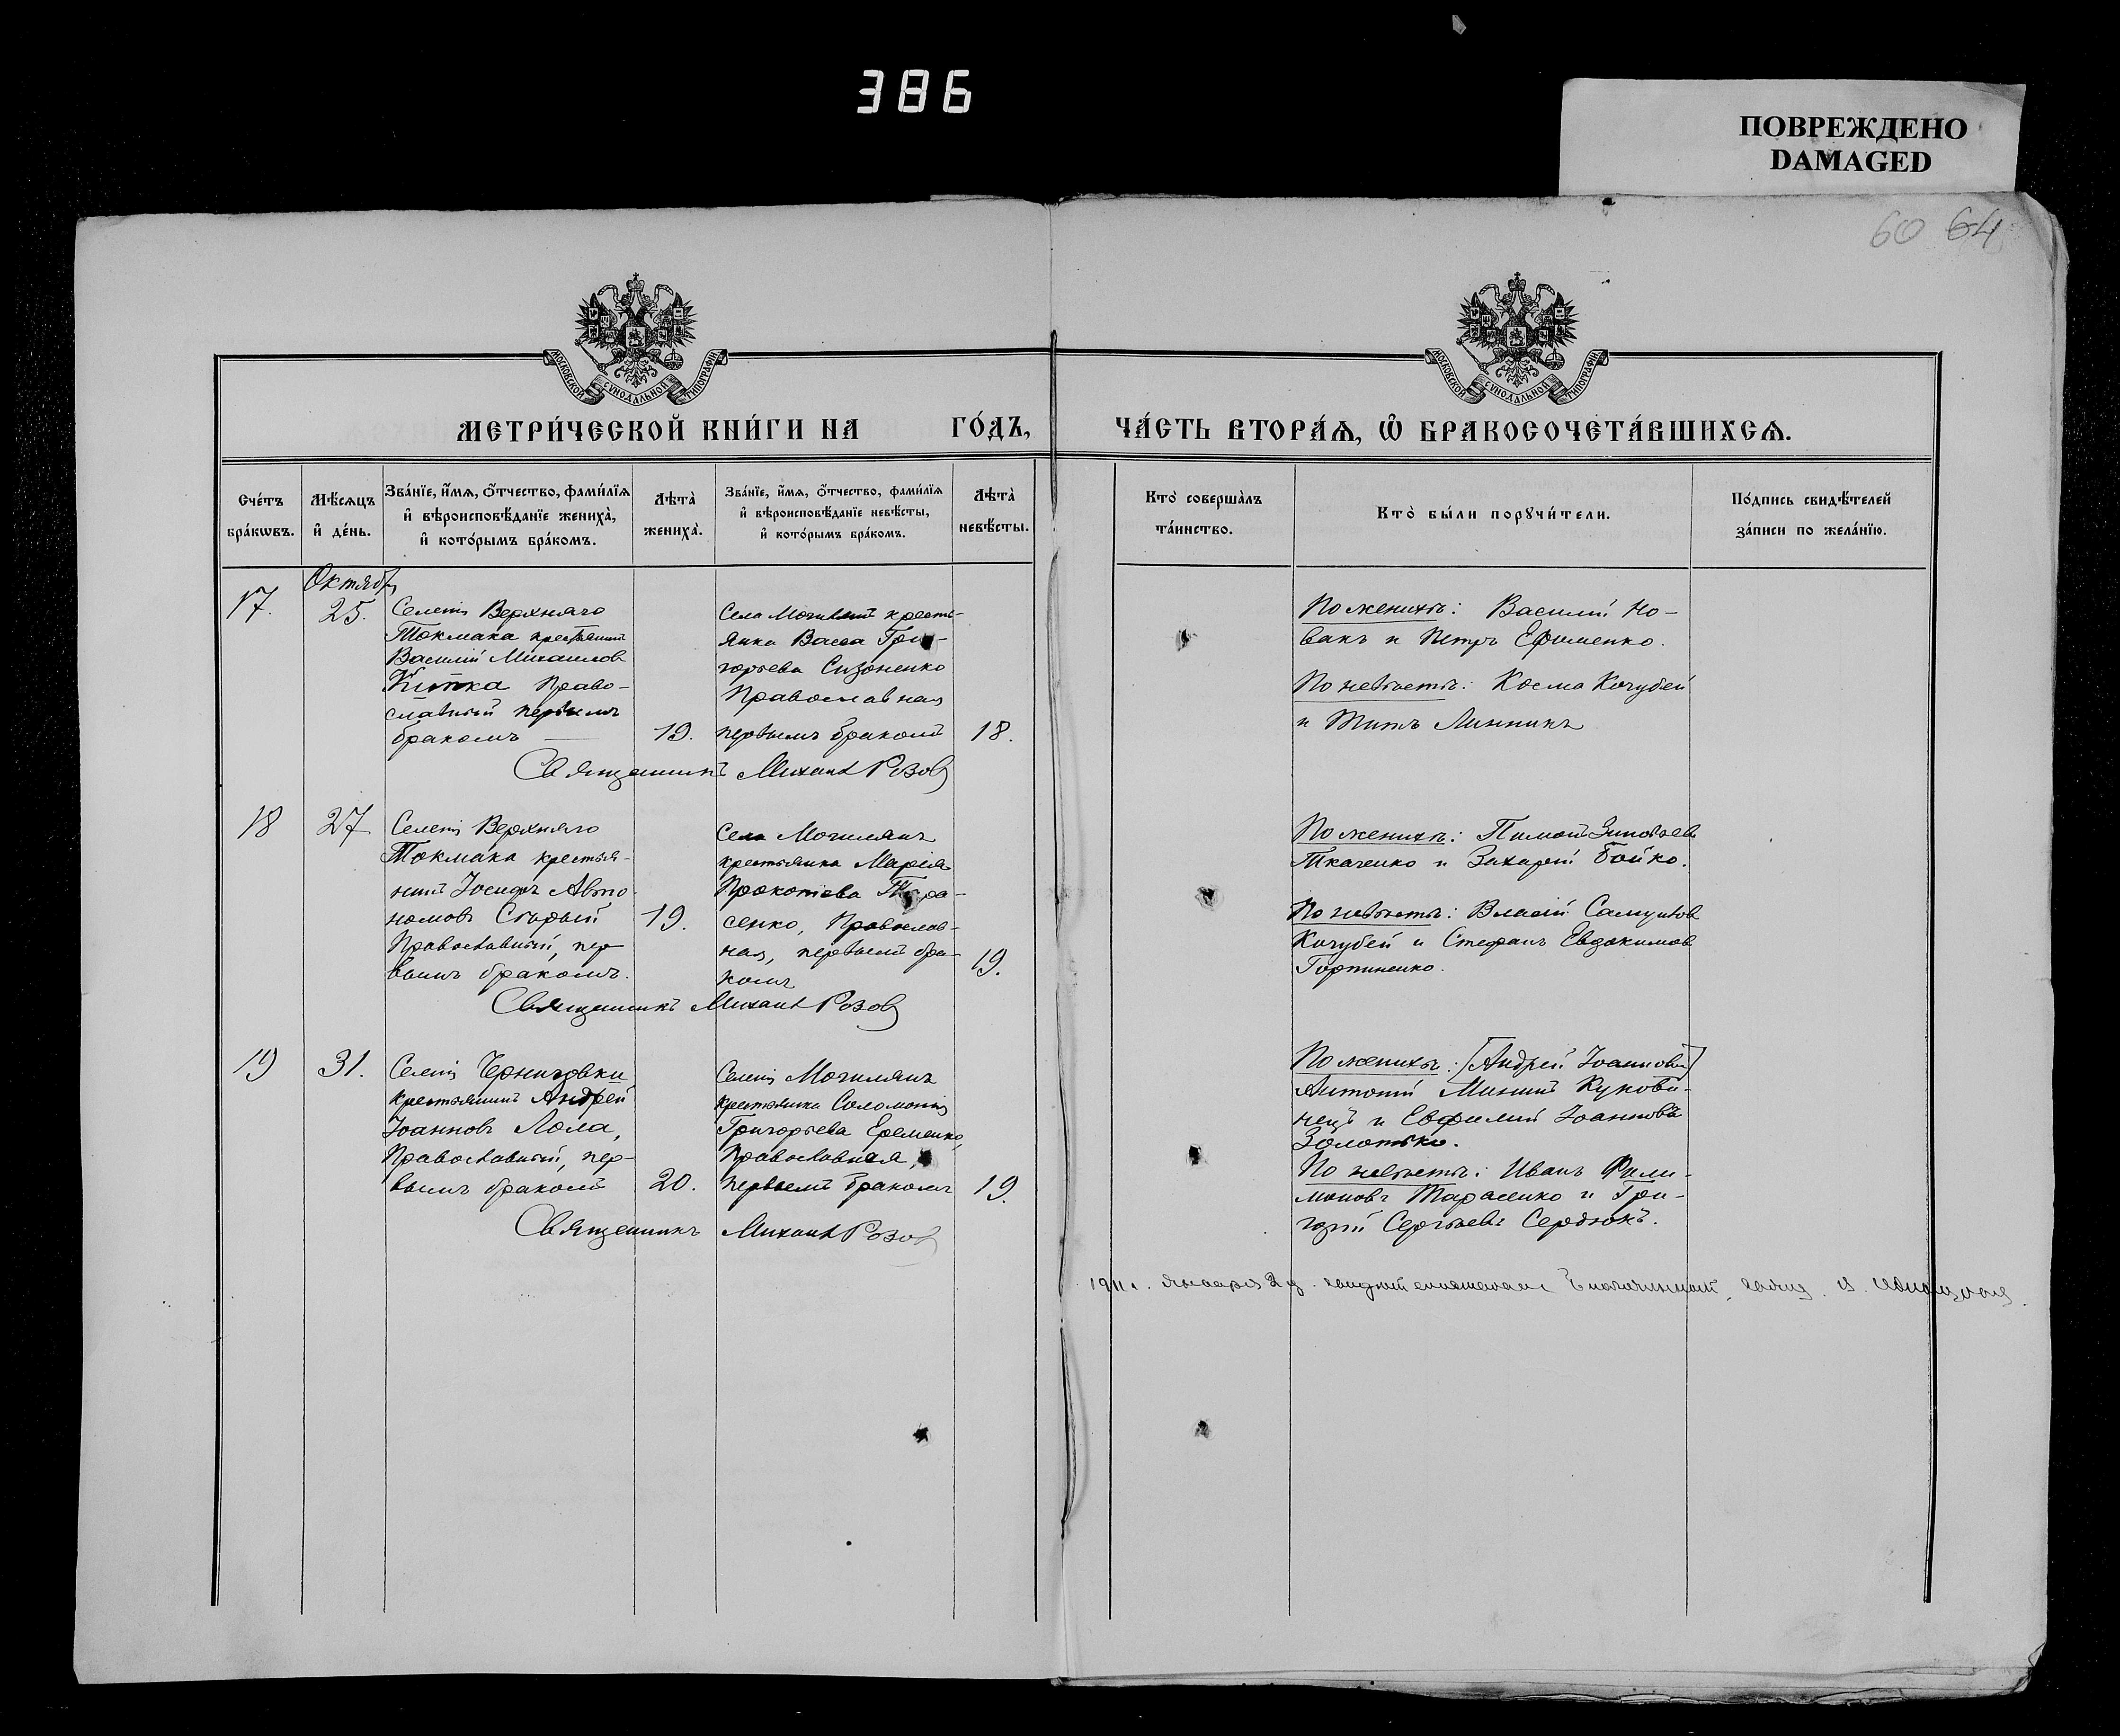 386
ПОВРЕЖДЕНО
DAMAGED
60 64
МОСКОВСКОЙ СУНОДАЛЬНОЙ ТИПОГРАФІИ
МОСКОВСКОЙ СУНОДАЛЬНОЙ ТИПОГРАФІИ
МЕТРИ́ЧЕСКОЙ КНИ́ГИ НА ГО́ДЪ,
ЧА́СТЬ ВТОРА́Ѧ, Ѡ҆ БРАКОСОЧЕТА́ВШИХСѦ.
Сче́тъ
бра́кѡвъ.
Мѣ́сѧцъ
и҆ де́нь.
Зва́нїе, и҆́мѧ, ѻ҆́тчество, фами́лїѧ
и҆ вѣроисповѣ́данїе жениха̀,
и҆ кото́рымъ бра́комъ.
Лѣта̀
жениха̀.
Зва́нїе, и҆́мѧ, ѻ҆́тчество, фами́лїѧ
и҆ вѣроисповѣ́данїе невѣ́сты,
и҆ кото́рымъ бра́комъ.
Лѣта̀
невѣ́сты.
Кто̀ соверша́лъ
та́инство.
Кто̀ бы́ли порꙋчи́тели.
По́дпись свидѣ́телей
за́писи по жела́нїю.
Октябрь
17.
25.
Селенія Верхняго
Токмака крестьянинъ
Василій Михаиловъ
Китка Право-
славный первымъ
бракомъ
19.
Села Могилянъ кресть-
янка Васса Гри-
горьева Сизоненко
Православная
первымъ бракомъ
18.
Священникъ Михаилъ Розовъ
По женихѣ: Василій Но-
вакъ и Петръ Ефименко.
По невѣстѣ: Косма Кочубей
и Титъ Линникъ
18
27
Селенія Верхняго
Токмака крестья-
нинъ Іосифъ Авто-
номовъ Старый
Православный, пер
вымъ бракомъ.
19.
Села Могилянъ
крестьянка Марія
Прокопіева Тара-
сенко, Православ-
ная, первымъ бра-
комъ
19.
Священникъ Михаилъ Розовъ
По женихѣ: Зиновьевъ
Ткаченко и Захарій Бойко.
По невѣстѣ: Власій Самуиловъ
Кочубей и Стефанъ Евдокимовъ
Горпиненко.
19
31.
Селенія Черниговки
крестьянинъ Андрей
Іоанновъ Лола,
Православный, пер-
вымъ бракомъ
20.
Селенія Могилянъ
крестьянка Соломонія
Григорьева Еременко,
Православная,
первымъ бракомъ
19.
Священникъ Михаилъ Розовъ
По женихѣ: [Андрей Іоанновъ]
Антоній Мининъ Кукови-
нецъ и Евфимій Іоанновъ
Золотько.
По невѣстѣ: Иванъ Фили-
моновъ Тарасенко и Гри-
горій Сергѣевъ Сердюкъ.
1911 г. января 2 д.